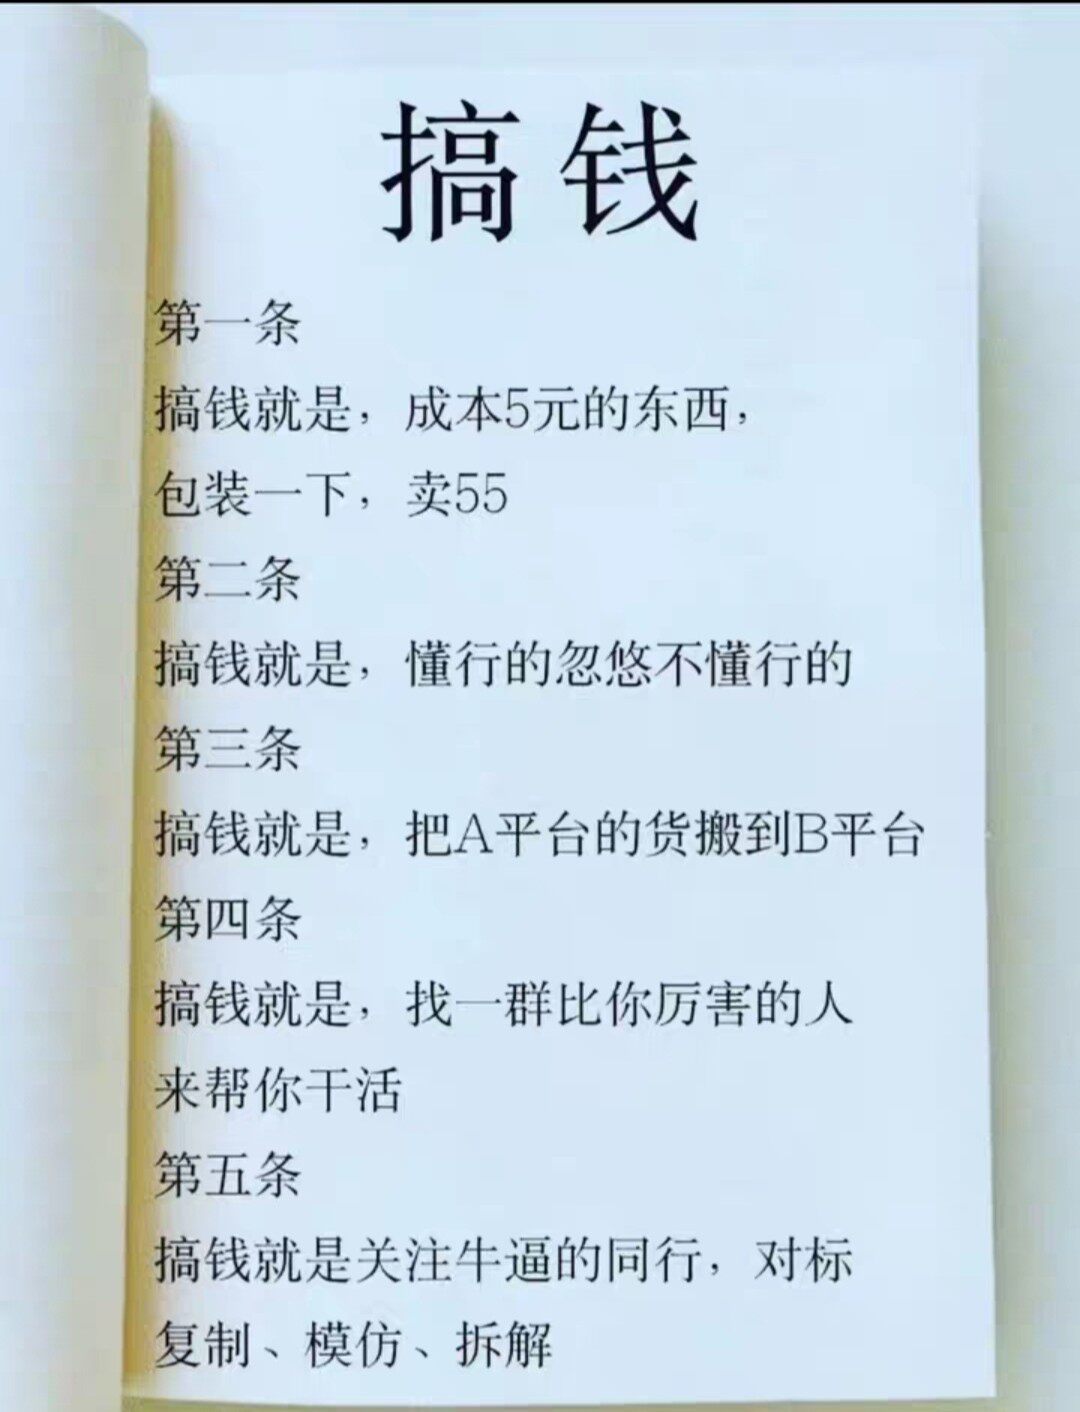 搞钱
第一条
搞钱就是，成本5元的东西，
包装一下，卖55
第二条
搞钱就是，懂行的忽悠不懂行的
第三条
搞钱就是，把A平台的货搬到B平台
第四条
搞钱就是，找一群比你厉害的人
来帮你干活
第五条
搞钱就是关注牛逼的同行，对标
复制、模仿、拆解